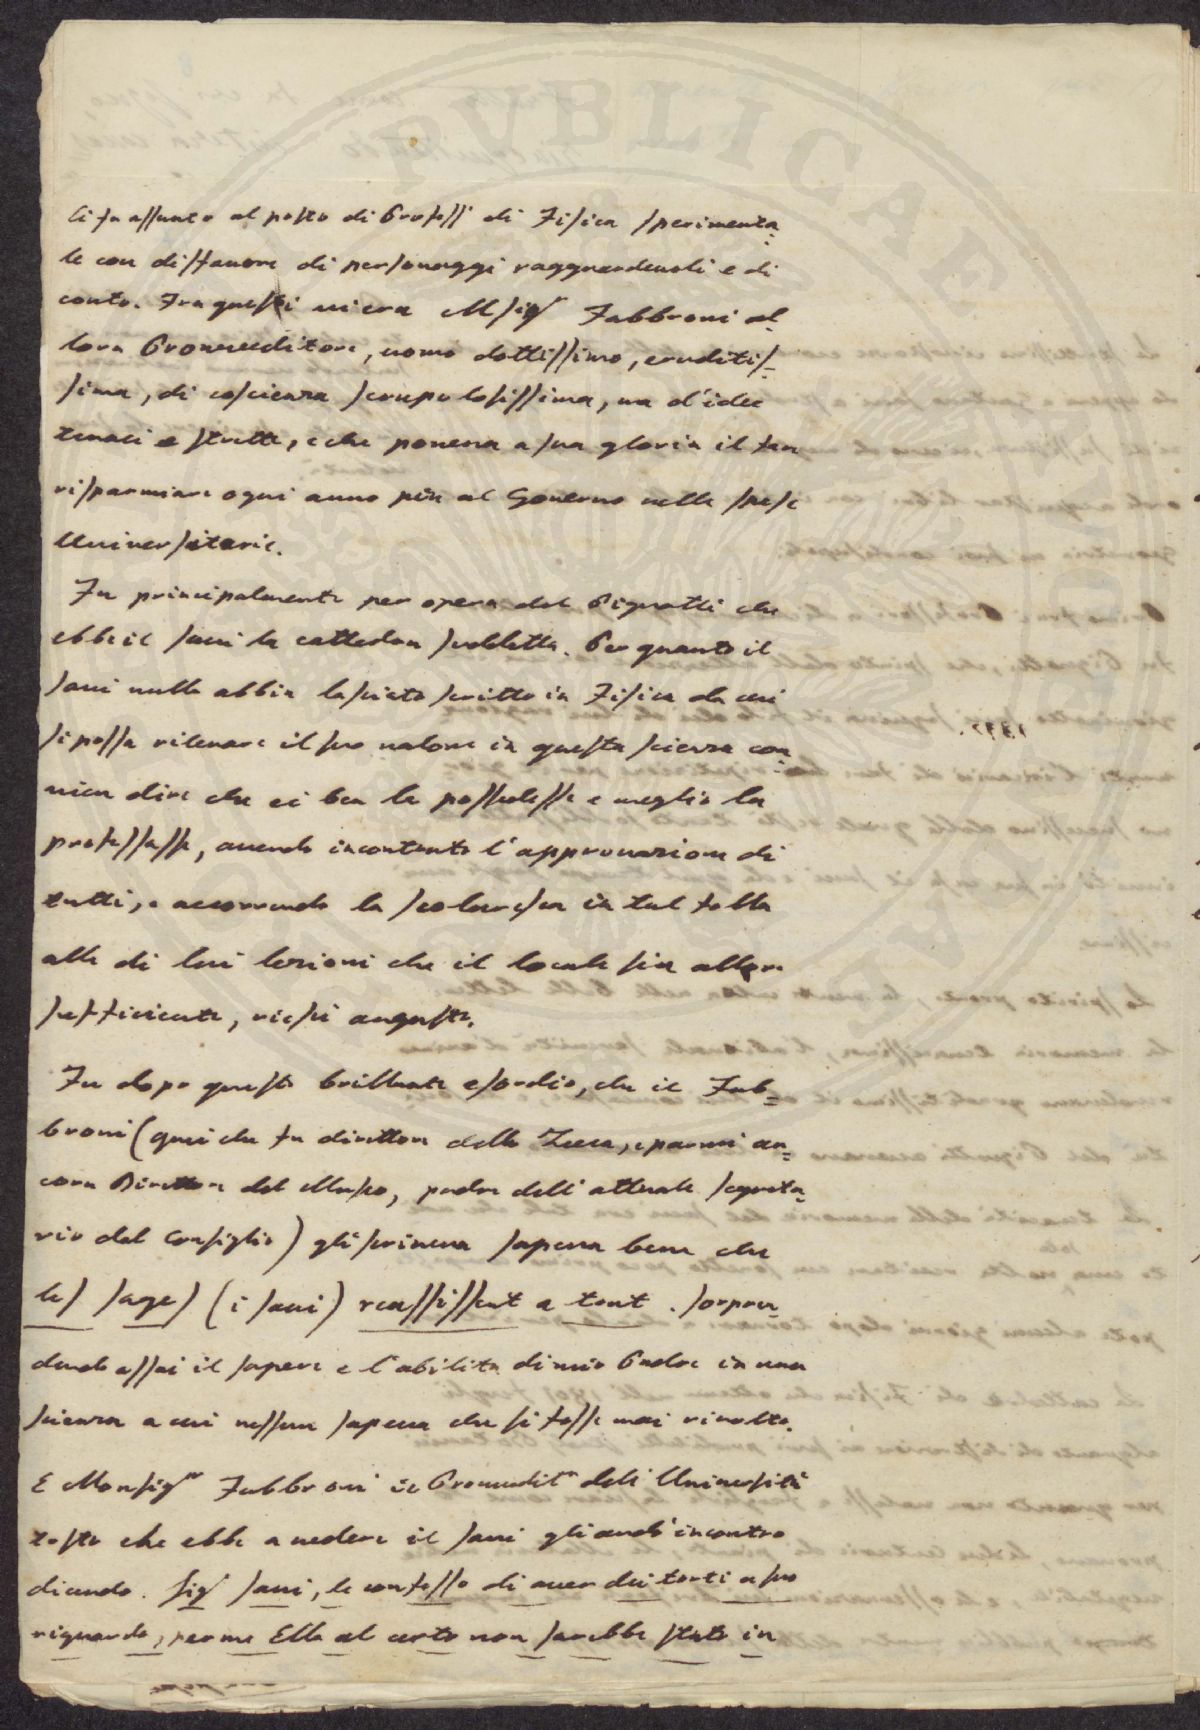 Ei fu assunto al posto di Profess.<sup>e</sup> di Fisica Sperimenta-
le con disfavore di personaggi ragguardevoli e di
conto. Fra questi vi era Msig<sup>r</sup> Fabbroni al-
lora Provveditore, uomo dottissimo, eruditis-
simo, di coscienza scrupolosissima, ma d'idee
tenaci e strette, e che poneva a sua gloria il far
risparmiare ogni anno più al Governo nelle spese
Universitarie.
Fu principalmente per opera del Pignotti che
ebbe il Savi la cattedra suddetta. Per quanto il
Savi nulla abbia lasciato scritto in Fisica da cui
si possa rilevare il suo valore in questa scienza con-
vien dire che ei ben la possedesse e meglio la
professasse, avendo incontrato l'approvazione di
tutti, e accorrendo la scolaresca in tal folla
alle di lui lezioni che il locale fin allora
sufficiente, riescì angusto.
Fu dopo questo brillante esordio, che il Fab-
broni (quei che fu direttore della Zecca, e parmi an-
cora Direttore del Museo, padre dell'attuale segreta-
rio del Consiglio) gli scriveva sapeva bene che
les sages (i Savi) reussissent a tout. Sorpren-
dendo assai il sapere e l'abilità di mio Padre in una
scienza a cui nessun sapeva che si fosse mai rivolto.
E Monsig<sup>r</sup> Fabbroni il Provvedit<sup>re</sup> dell'Università
tosto che ebbe a vedere il Savi gli andò incontro
dicendo. Sig<sup>r</sup> Savi, le confesso di aver dei torti a suo
riguardo, per me Ella al certo non sarebbe stato in